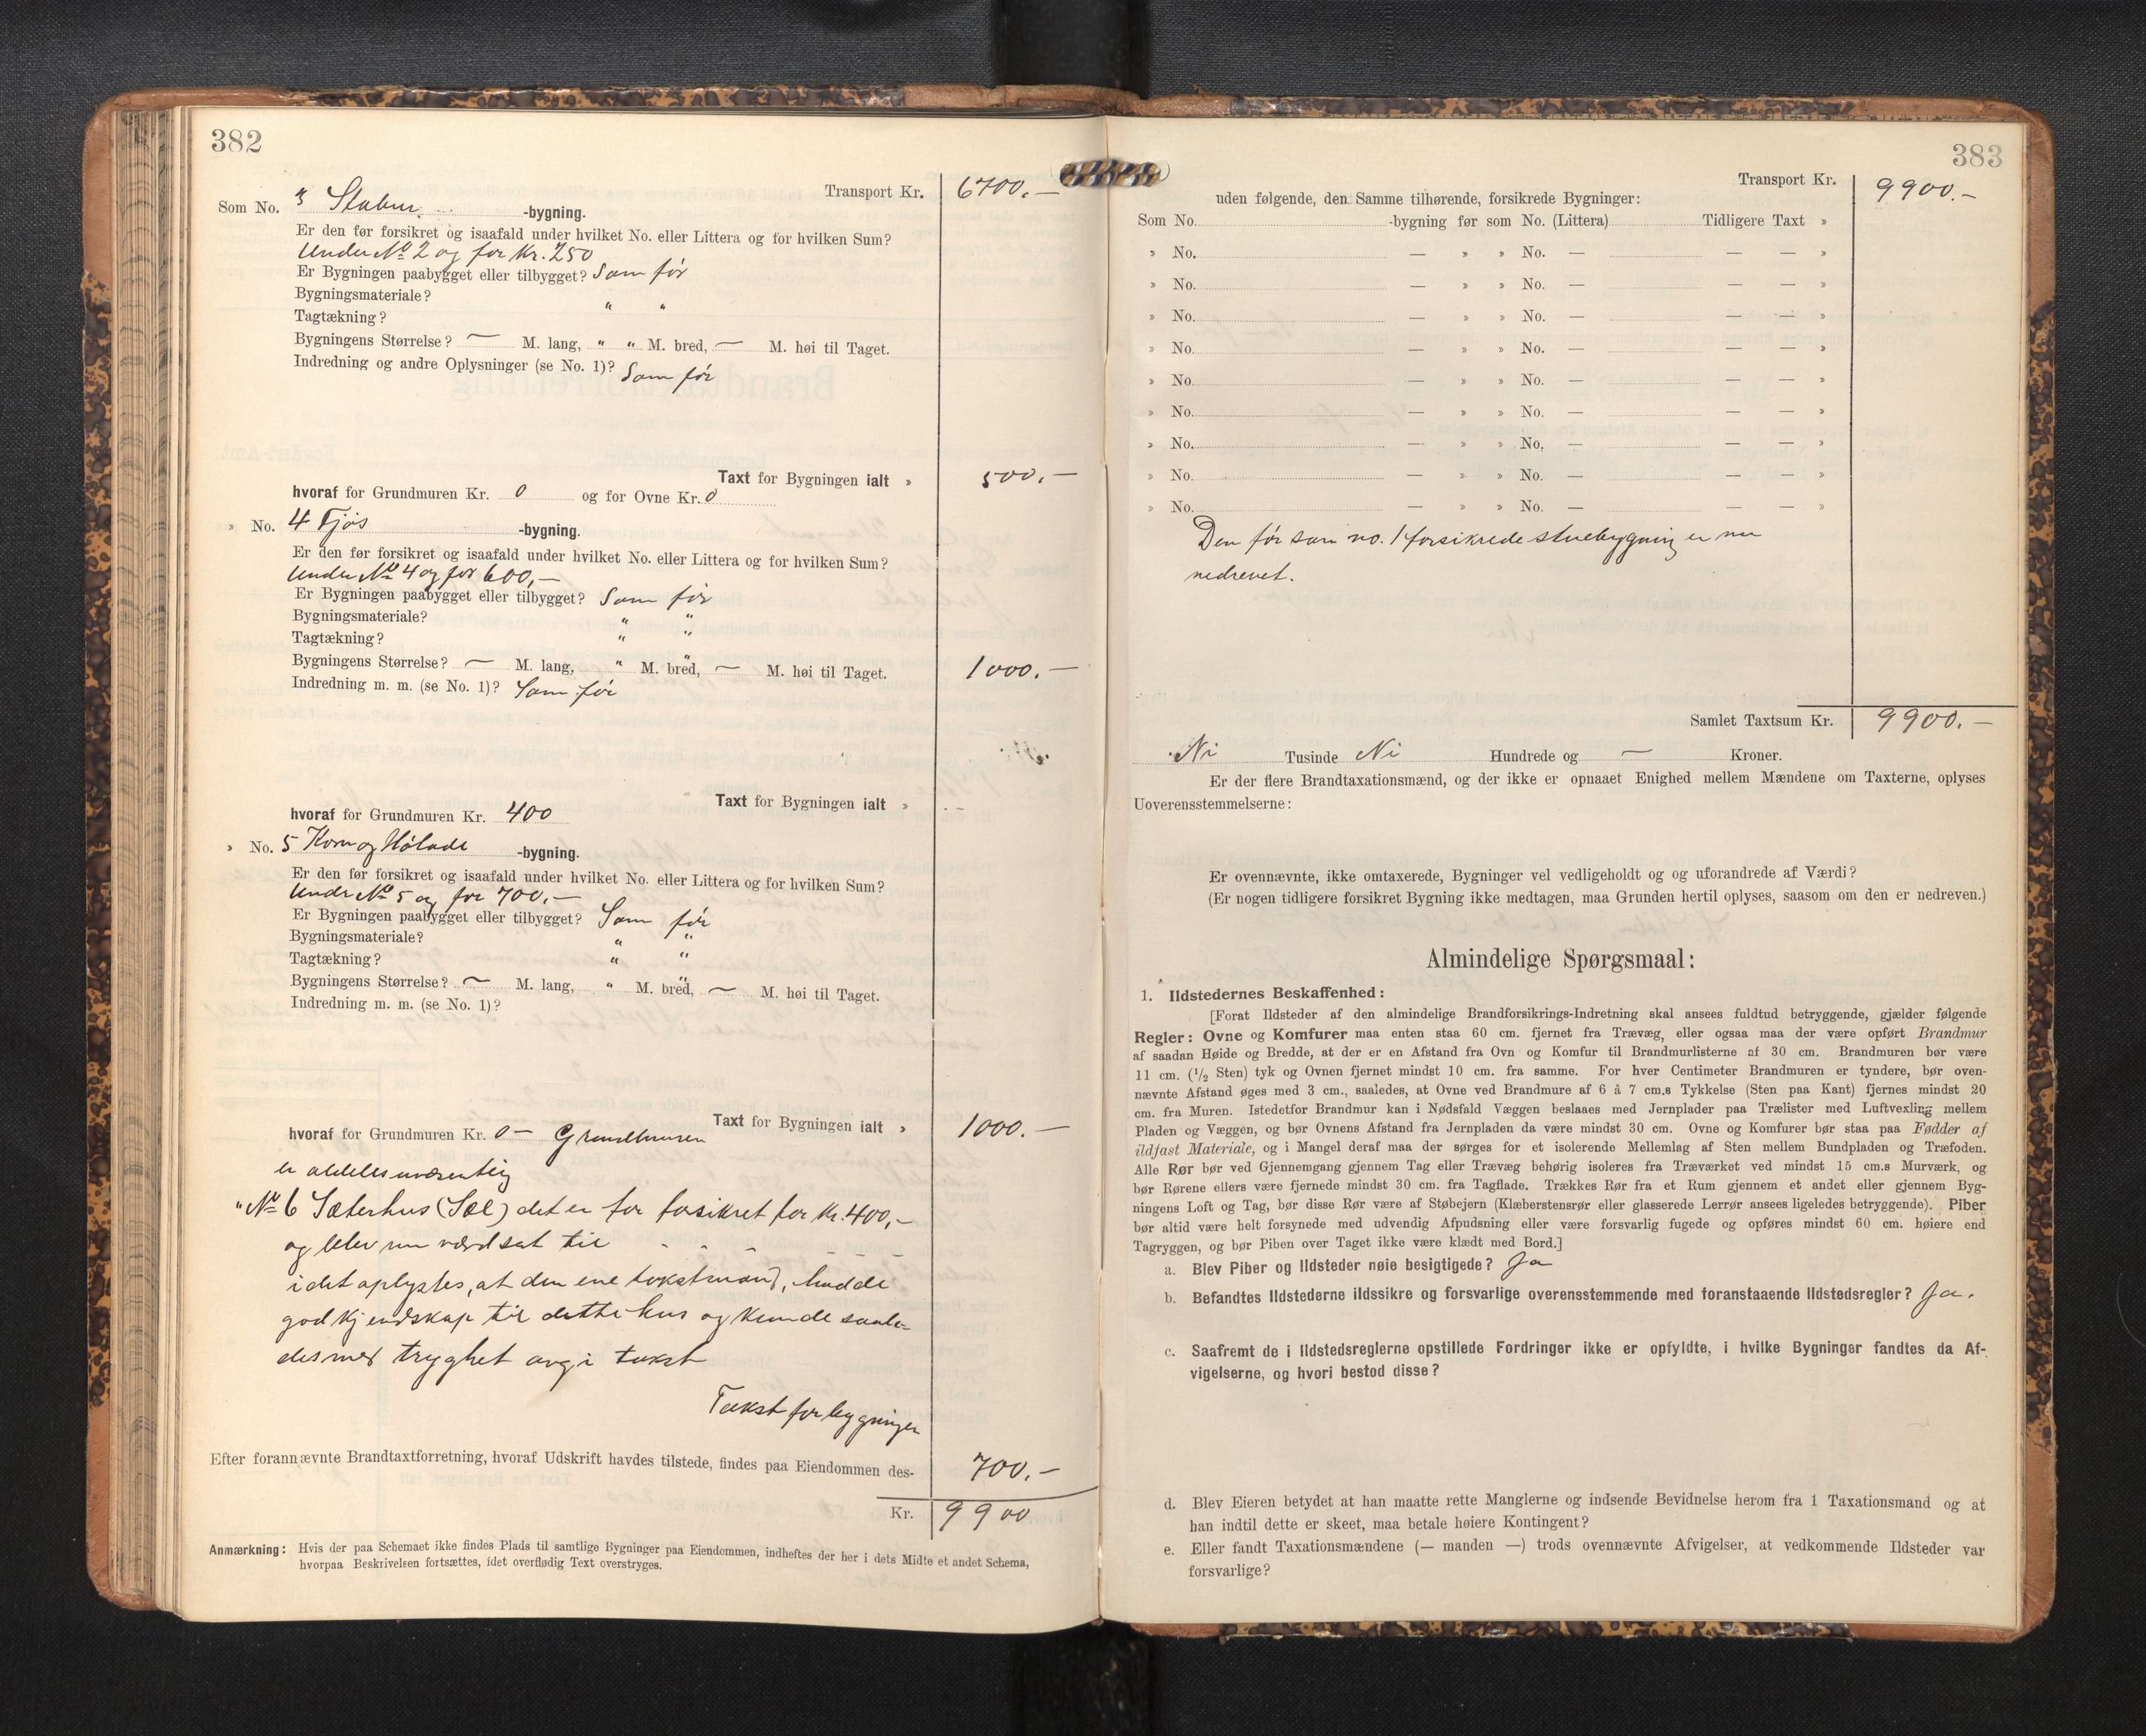 382
Transport Kr. 6700.—
Som No. 3 Stabur -bygning.
Er den før forsikret og isaafald under hvilket No. eller Littera og for hvilken Sum?
Under No 2 og for Kr. 250
Er Bygningen paabygget eller tilbygget? Som før
Bygningsmateriale? " "
Tagtækning?
Bygningens Størrelse? — M. lang, " " M. bred, — M. høi til Taget.
Indredning og andre Oplysninger (se No. 1)? Som før
Taxt for Bygningen ialt » 500.—
hvoraf for Grundmuren Kr. 0 og for Ovne Kr. 0
» No. 4 Fjøs -bygning.
Er den før forsikret og isaafald under hvilket No. eller Littera og for hvilken Sum?
Under No 4 og for 600,—
Er Bygningen paabygget eller tilbygget? Som før
Bygningsmateriale? " "
Tagtækning? "
Bygningens Størrelse? — M. lang, " M. bred, " — M. høi til Taget. 1000.—
Indredning m. m. (se No. 1)? Som før
Taxt for Bygningen ialt »
hvoraf for Grundmuren Kr. 400
» No. 5 Korn og Hølade -bygning.
Er den før forsikret og isaafald under hvilket No. eller Littera og for hvilken Sum?
Under No 5 og for 700.—
Er Bygningen paabygget eller tilbygget? Som før
Bygningsmateriale? " "
Tagtækning? " "
Bygningens Størrelse? — M. lang, " M. bred, " — M. høi til Taget.
Indredning m. m. (se No. 1)?
Taxt for Bygningen ialt » 1000.—
hvoraf for Grundmuren Kr. 0 — Grundmuren
er aldeles uvæsentlig
" No 6 Sæterhus (Sæl) det er før forsikret for Kr. 400,—
og blev nu værdsat til - - - -
idet oplystes, at den ene takstmand, hadde
god kjendskap til dette hus og kunde saale-
des med tryghet avgi takst
Takst for bygningen
Efter forannævnte Brandtaxtforretning, hvoraf Udskrift havdes tilstede, findes paa Eiendommen des- 700.—
Kr. 9900
Anmærkning: Hvis der paa Schemaet ikke findes Plads til samtlige Bygninger paa Eiendommen, indheftes der her i dets Midte et andet Schema,
hvorpaa Beskrivelsen fortsættes, idet overflødig Text overstryges.
383
Transport Kr. 9900.—
uden følgende, den Samme tilhørende, forsikrede Bygninger:
Som No. -bygning før som No. (Littera) Tidligere Taxt »
» No. — » » No. — — — »
» No. — » » No. — — — »
» No. — » » No. — — — »
» No. — » » No. — — — »
» No. — » » No. — — — »
» No. — » » No. — — — »
» No. — » » No. — — — »
» No. — » » No. — — — »
» No. — » » No. — — — »
Den før som no. 1 forsikrede stuebygning er nu
nedrevet.
Samlet Taxtsum Kr. 9900.—
Ni Tusinde Ni Hundrede og — Kroner.
Er der flere Brandtaxationsmænd, og der ikke er opnaaet Enighed mellem Mændene om Taxterne, oplyses
Uoverensstemmelserne:
Er ovennævnte, ikke omtaxerede, Bygninger vel vedligeholdt og og uforandrede af Værdi?
(Er nogen tidligere forsikret Bygning ikke medtagen, maa Grunden hertil oplyses, saasom om den er nedreven.)
Almindelige Spørgsmaal:
1. Ildstedernes Beskaffenhed:
[Forat Ildsteder af den almindelige Brandforsikrings-Indretning skal ansees fuldtud betryggende, gjælder følgende
Regler: Ovne og Komfurer maa enten staa 60 cm. fjernet fra Trævæg, eller ogsaa maa der være opført Brandmur
af saadan Høide og Bredde, at der er en Afstand fra Ovn og Komfur til Brandmurlisterne af 30 cm. Brandmuren bør være
11 cm. (1/2 Sten) tyk og Ovnen fjernet mindst 10 cm. fra samme. For hver Centimeter Brandmuren er tyndere, bør oven-
nævnte Afstand øges med 3 cm., saaledes, at Ovne ved Brandmure af 6 à 7 cm.s Tykkelse (Sten paa Kant) fjernes mindst 20
cm. fra Muren. Istedetfor Brandmur kan i Nødsfald Væggen beslaaes med Jernplader paa Trælister med Luftvexling mellem
Pladen og Væggen, og bør Ovnens Afstand fra Jernpladen da være mindst 30 cm. Ovne og Komfurer bør staa paa Fødder af
ildfast Materiale, og i Mangel deraf maa der sørges for et isolerende Mellemlag af Sten mellem Bundpladen og Træfoden.
Alle Rør bør ved Gjennemgang gjennem Tag eller Trævæg behørig isoleres fra Træværket ved mindst 15 cm.s Murværk, og
bør Rørene ellers være fjernede mindst 30 cm. fra Tagflade. Trækkes Rør fra et Rum gjennem et andet eller gjennem Byg-
ningens Loft og Tag, bør disse Rør være af Støbejern (Klæberstensrør eller glasserede Lerrør ansees ligeledes betryggende). Piber
bør altid være helt forsynede med udvendig Afpudsning eller være forsvarlig fugede og opføres mindst 60 cm. høiere end
Tagryggen, og bør Piben over Taget ikke være klædt med Bord.]
a. Blev Piber og Ildsteder nøie besigtigede? Ja
b. Befandtes Ildstederne ildssikre og forsvarlige overensstemmende med foranstaaende Ildstedsregler? Ja.
c. Saafremt de i Ildstedsreglerne opstillede Fordringer ikke er opfyldte, i hvilke Bygninger fandtes da Af-
vigelserne, og hvori bestod disse?
d. Blev Eieren betydet at han maatte rette Manglerne og indsende Bevidnelse herom fra 1 Taxationsmand og at
han indtil dette er skeet, maa betale høiere Kontingent?
e. Eller fandt Taxationsmændene (— manden —) trods ovennævnte Afvigelser, at vedkommende Ildsteder var
forsvarlige?